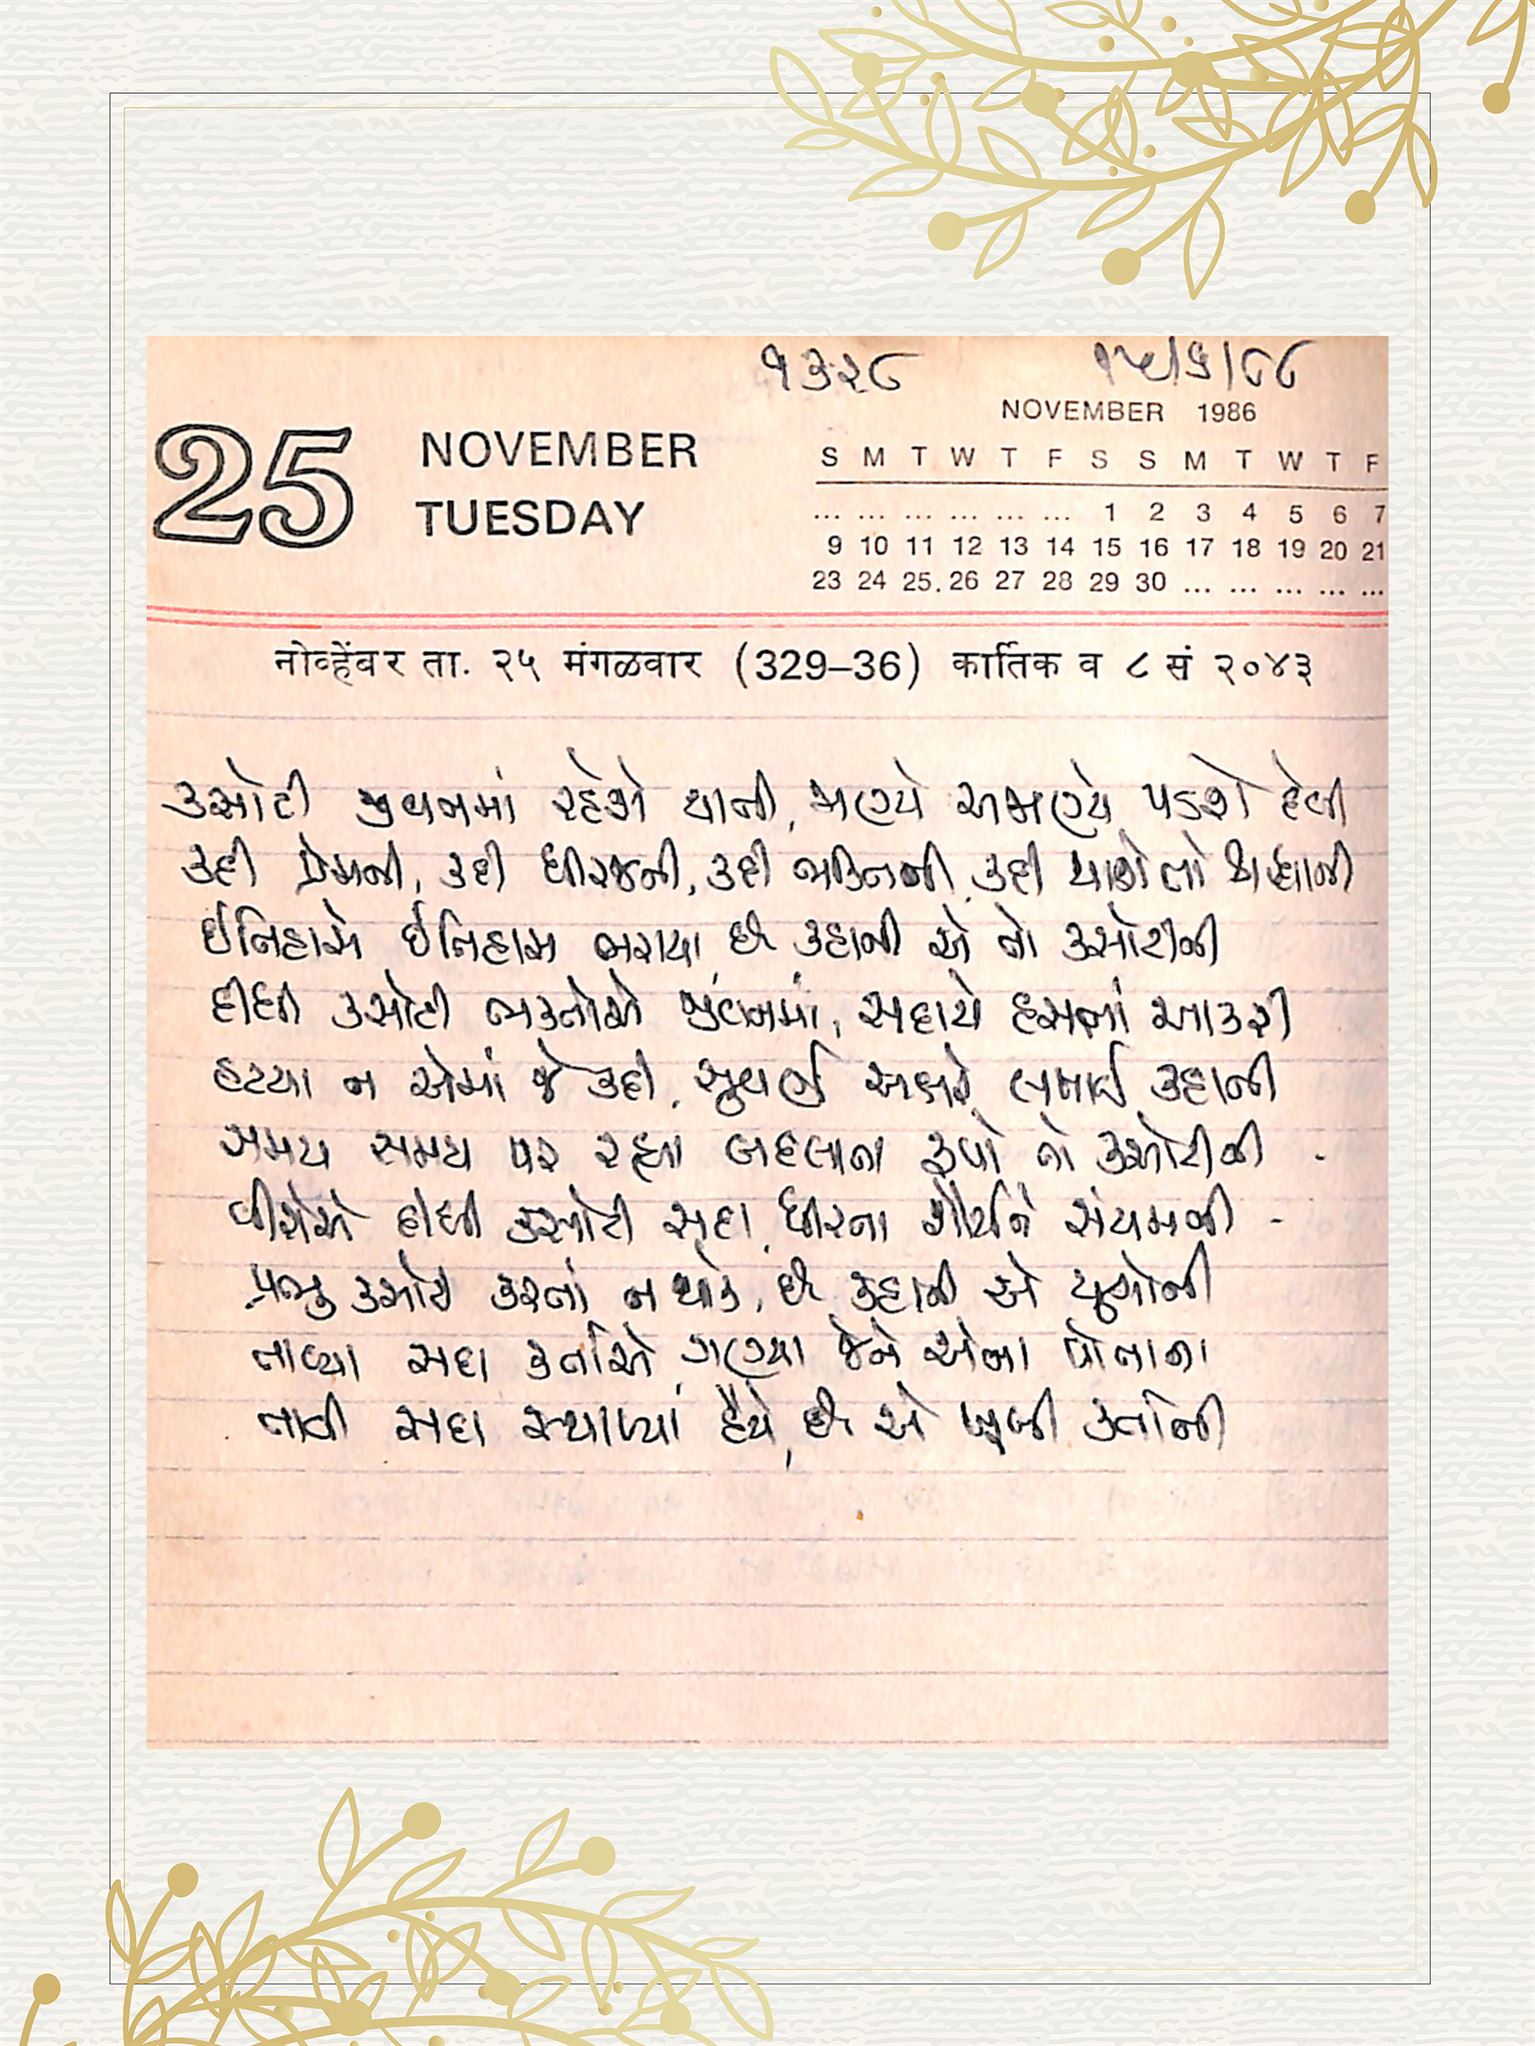 ૧૩૨૮ ૧૫/૬/૮૮
NOVEMBER 1986
25 NOVEMBER
TUESDAY
S M T W T F S S M T W T F
... ... ... ... ... ... 1 2 3 4 5 6 7
9 10 11 12 13 14 15 16 17 18 19 20 21
23 24 25. 26 27 28 29 30 ... ... ... ... ...
नोव्हेंबर ता. २५ मंगळवार (329–36) कार्तिक व ८ सं २०४३
કસોટી જીવનમાં રહેશે થાતી, જાણ્યે અજાણ્યે પડશે દેવી
કદી પ્રેમની, કદી ધીરજની, કદી ભક્તિની, કદી થાશે તો શ્રદ્ધાની
ઈતિહાસે ઈતિહાસ ભરાયા, છે કહાની એ તો કસોટીની
દીધી કસોટી ભક્તોએ જીવનમાં, સદાયે હસતાં આકરી
હટયા ન એમાં જે કદી, સુવર્ણ અક્ષરે લખાઈ કહાની
સમય સમય પર રહ્યા બદલાતા રૂપો તો કસોટીની -
વીરોએ દીધી કસોટી સદા, ધીરતા શૌર્ય ને સંયમની -
પ્રભુ કસોટી કરતાં ન થાકે, છે કહાની એ યુગોની
તાવ્યા સદા કર્તાએ, ગણ્યા જેને એના પોતાના
તાવી સદા સ્થાપ્યાં હૈયે, છે એ ખૂબી કર્તાની